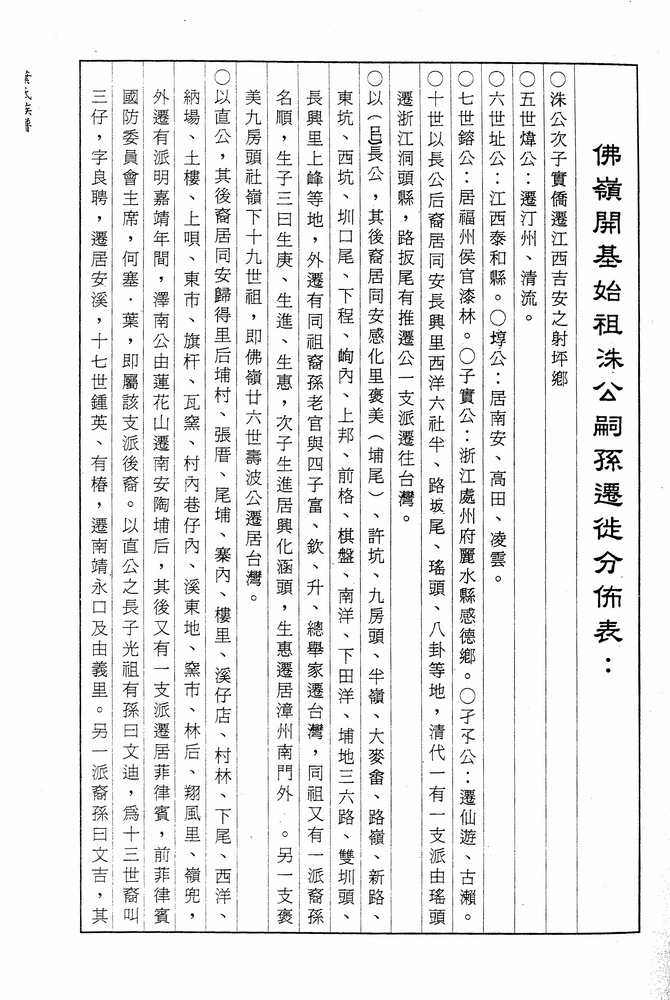 佛嶺開基始祖洙公嗣孫遷徙分佈表：
〇洙公次子實僑遷江西吉安之射坪鄉
〇五世煒公：遷汀州、清流。
〇六世址公：江西泰和縣。〇埻公：居南安、高田、凌雲。
〇七世鎔公：居福州侯官漆林。〇子實公：浙江處州府麗水縣感德鄉。〇孑孓公：遷仙遊、古瀨。
〇十世以長公后裔居同安長興里西洋六社半、路坂尾、瑤頭、八卦等地，清代一有一支派由瑤頭
遷浙江洞頭縣，路扳尾有推遷公一支派遷往台灣。
〇以（㠯）長公，其後裔居同安感化里褒美（埔尾）、許坑、九房頭、半嶺、大麥畬、路嶺、新路、
東坑、西坑、圳口尾、下程、峋內、上邦、前格、棋盤、南洋、下田洋、埔地三六路、雙圳頭、
長興里上峰等地，外遷有同祖裔孫老官與四子富、欽、升、總舉家遷台灣，同祖又有一派裔孫
名順，生子三曰生庚、生進、生惠，次子生進居興化涵頭，生惠遷居漳州南門外。另一支褒
美九房頭社嶺下十九世祖，即佛嶺廿六世壽波公遷居台灣。
〇以直公，其後裔居同安歸得里后埔村、張厝、尾埔、寨內、樓里、溪仔店、村林、下尾、西洋、
納場、土樓、上唄、東市、旗杆、瓦窯、村內巷仔內、溪東地、窯市、林后、翔風里、嶺兜，
外遷有派明嘉靖年間，澤南公由蓮花山遷南安陶埔后，其後又有一支派遷居菲律賓，前菲律賓
國防委員會主席，何塞·葉，即屬該支派後裔。以直公之長子光祖有孫曰文迪，為十三世裔叫
三仔，字良聘，遷居安溪，十七世鍾英、有椿，遷南靖永口及由義里。另一派裔孫曰文吉，其
葉氏族譜